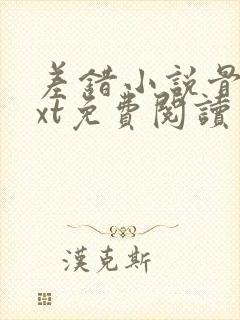 差錯小說量
xt免費閱讀
漢克斯